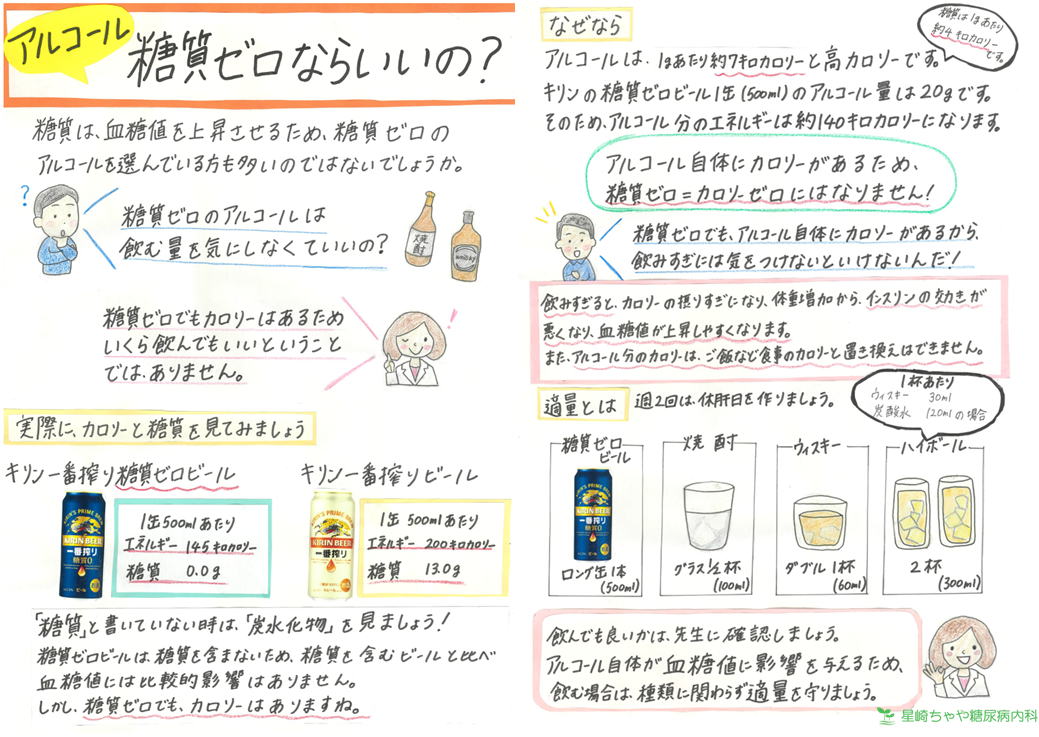 アルコール
糖質ゼロならいいの?
糖質は、血糖値を上昇させるため、糖質ゼロの
アルコールを選んでいる方も多いのではないでしょうか。
?
糖質ゼロのアルコールは
飲む量を気にしなくていいの?
焼酎
Whisky
糖質ゼロでもカロリーはあるため
いくら飲んでもいいということ
では、ありません。
!
実際に、カロリーと糖質を見てみましょう
キリン一番搾り糖質ゼロビール
キリン一番搾りビール
KIRIN'S PRIME BREW
KIRIN BEER
一番搾り
糖質0
1缶500mlあたり
エネルギー 145キロカロリー
糖質 0.0g
KIRIN'S PRIME BREW
KIRIN BEER
一番搾り
1缶 500mlあたり
エネルギー 200キロカロリー
糖質 13.0g
「糖質」と書いていない時は、「炭水化物」を見ましょう!
糖質ゼロビールは、糖質を含まないため、糖質を含むビールと比べ
血糖値には比較的影響はありません。
しかし、糖質ゼロでも、カロリーはありますね。
なぜなら
糖質は1gあたり
約4キロカロリー
です。
アルコールは、1gあたり約7キロカロリーと高カロリーです。
キリンの糖質ゼロビール1缶(500ml)のアルコール量は20gです。
そのため、アルコール分のエネルギーは約140キロカロリーになります。
アルコール自体にカロリーがあるため、
糖質ゼロ=カロリーゼロにはなりません!
糖質ゼロでも、アルコール自体にカロリーがあるから、
飲みすぎには気をつけないといけないんだ!
飲みすぎると、カロリーの摂りすぎになり、体重増加から、インスリンの効きが
悪くなり、血糖値が上昇しやすくなります。
また、アルコール分のカロリーは、ご飯など食事のカロリーと置き換えはできません。
適量とは
週2回は、休肝日を作りましょう。
1杯あたり
ウィスキー 30ml
炭酸水 120mlの場合
糖質ゼロ
ビール
KIRIN'S PRIME BREW
KIRIN BEER
一番搾り
糖質0
ロング缶1本
(500ml)
焼酎
グラス1/2杯
(100ml)
ウィスキー
ダブル1杯
(60ml)
ハイボール
2杯
(300ml)
飲んでも良いかは、先生に確認しましょう。
アルコール自体が血糖値に影響を与えるため、
飲む場合は、種類に関わらず適量を守りましょう。
星崎ちゃや糖尿病内科